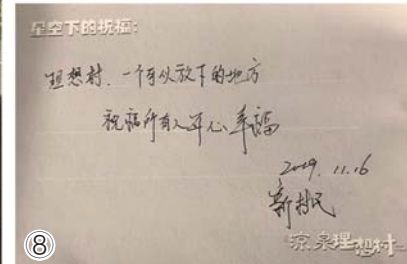 星空下的祝福:
理想村，一个可以放下的地方
祝福所有人开心幸福
2019.11.16
新村民
凉泉理想村
⑧